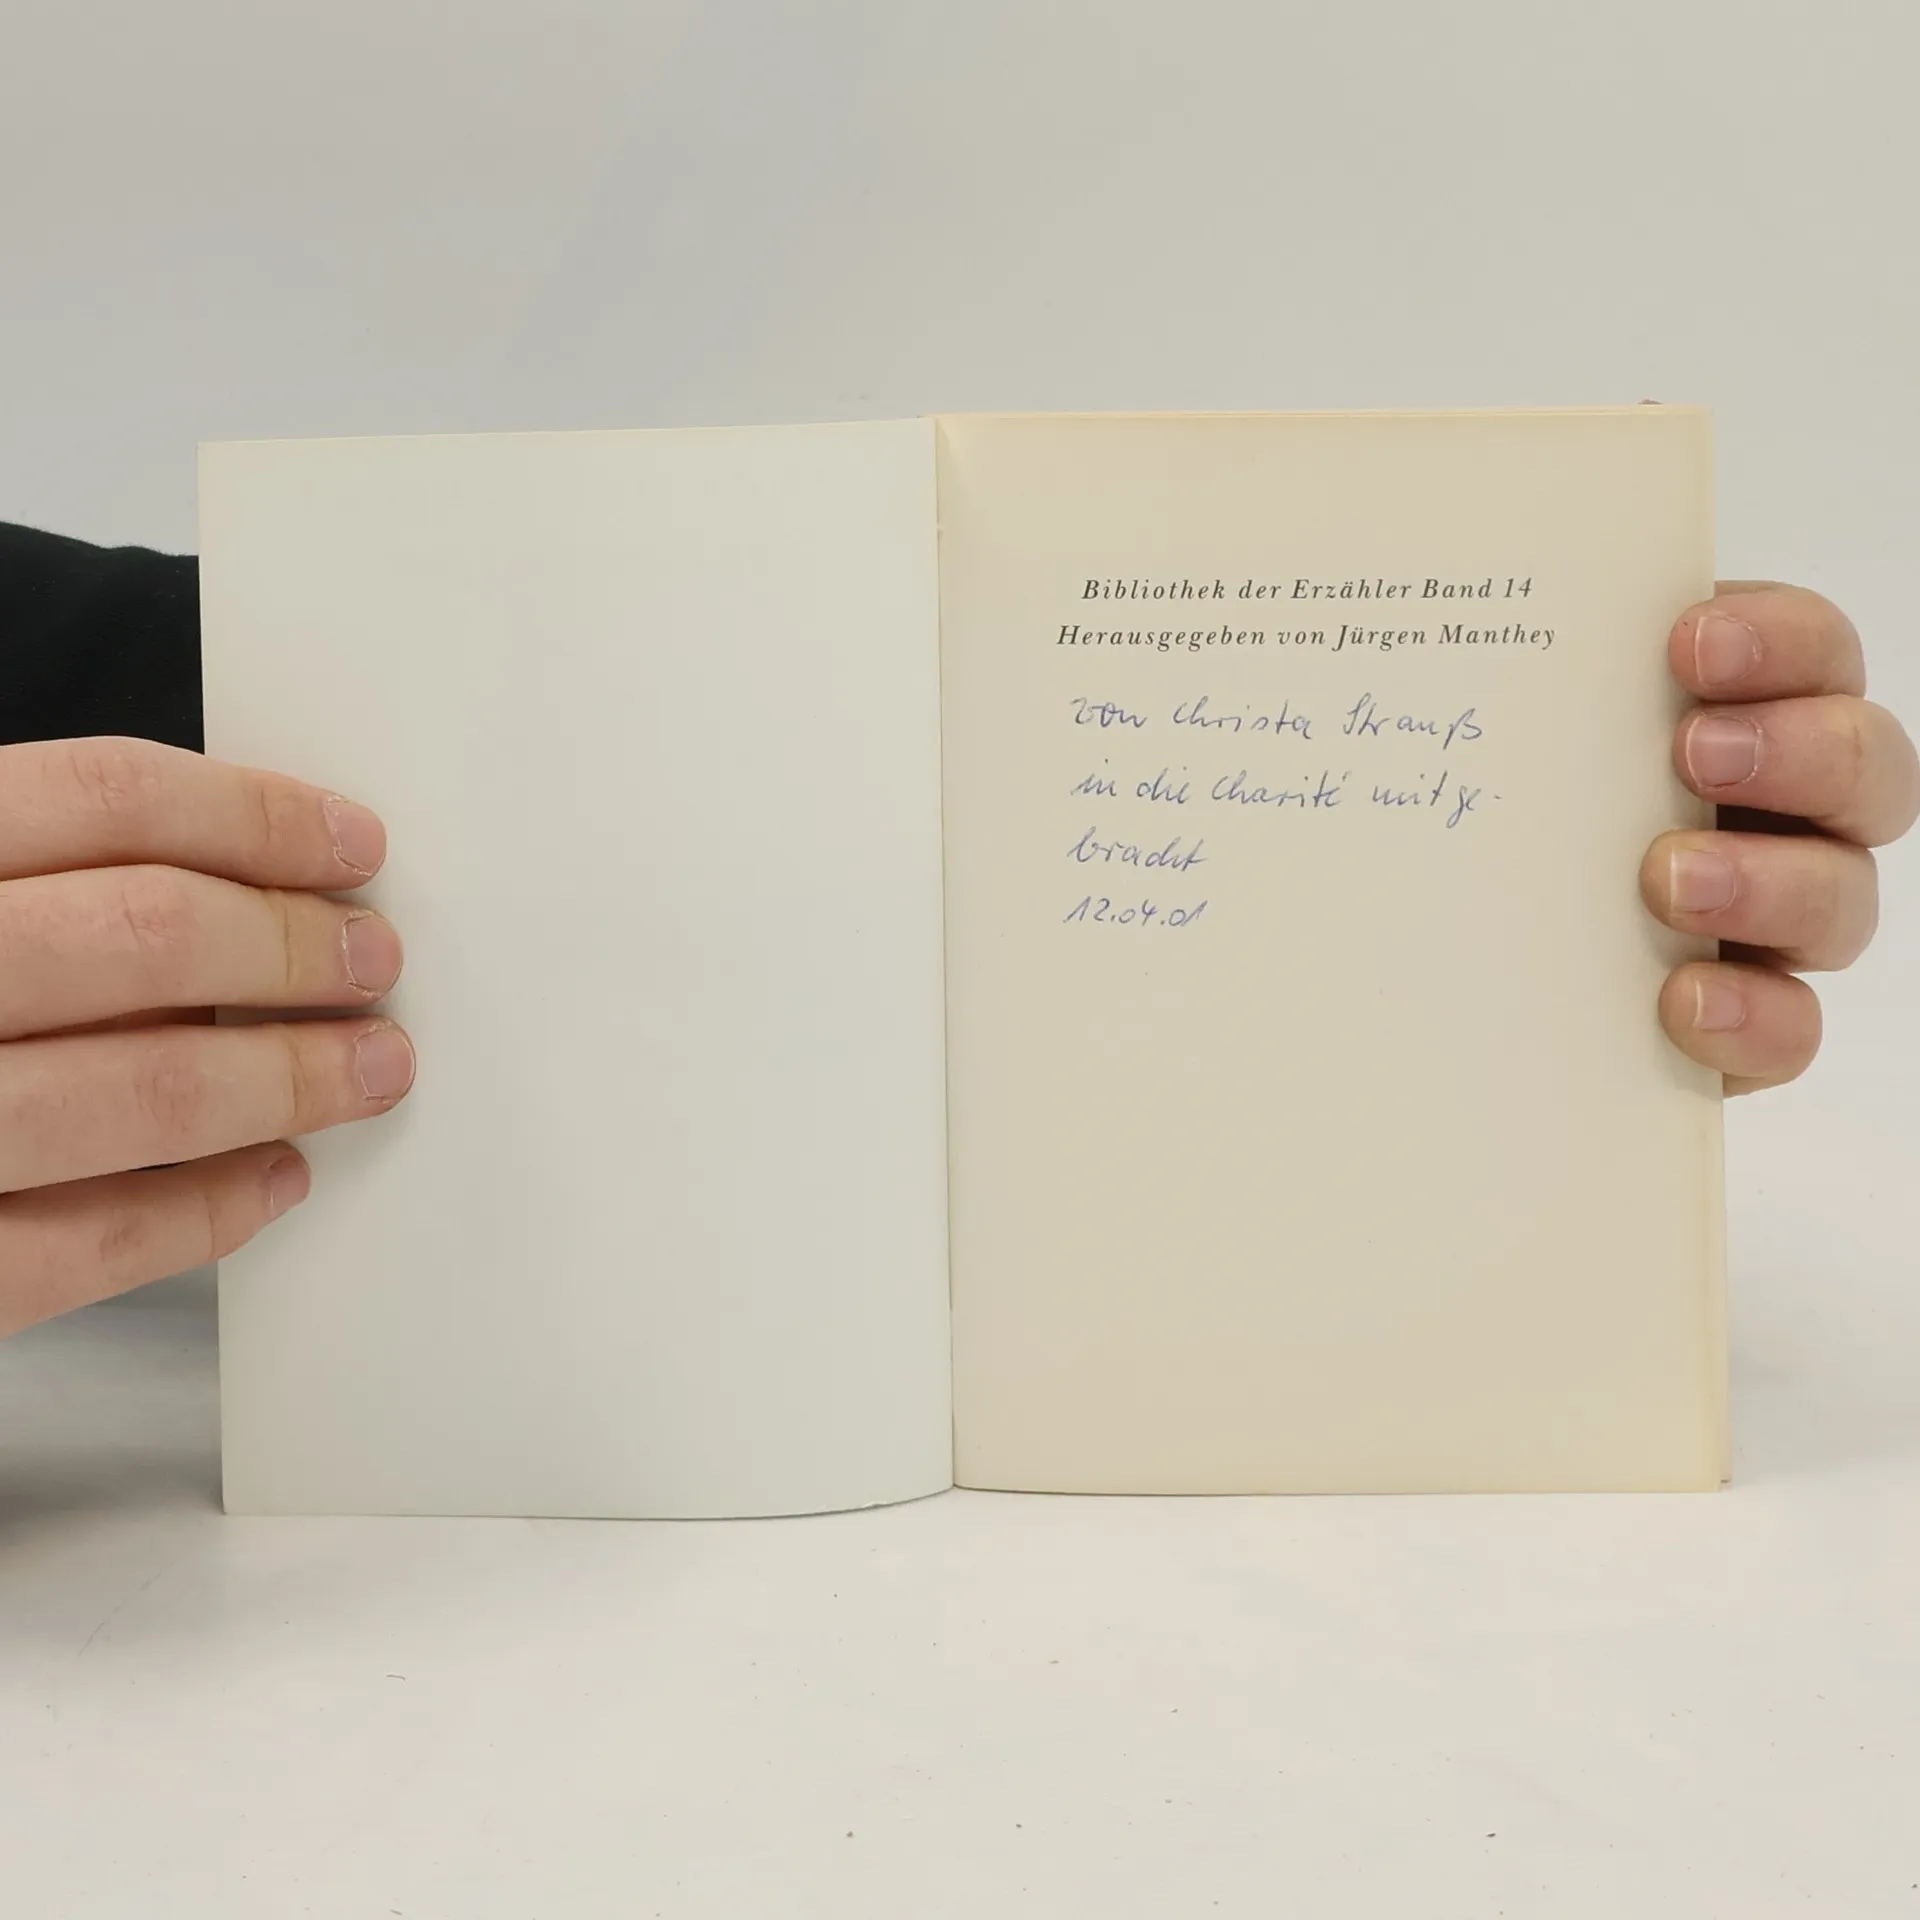 Bibliothek der Erzähler Band 14
Herausgegeben von Jürgen Manthey
von Christa Strauß
in die Charité mitge-
bracht
12.04.01